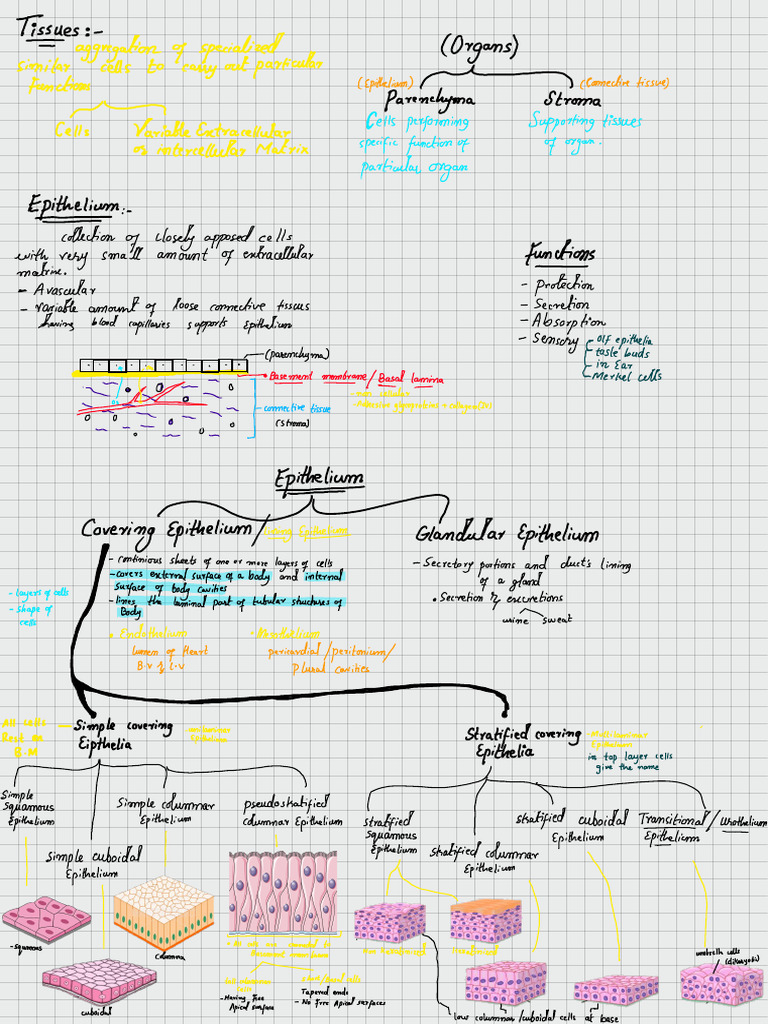 Tissues:-
aggregation of specialised
similar cells to carry out particular
function
Cells
Variable Extracellular
or intercellular Matrix
(Organs)
(Epithelium)
Parenchyma
Cells performing
specific function of
particular organ
(Connective tissue)
Stroma
Supporting tissues
of organ.
Epithelium:-
collection of closely apposed cells
with very small amount of extracellular
matrix.
- Avascular
- variable amount of loose connective tissues
having blood capillaries supports Epithelium
Functions
- Protection
- Secretion
- Absorption
- Sensory
olf epithelia
taste buds
in Ear
Merkel cells
(parenchyma)
Basement membrane / Basal lamina
- non cellular
connective tissue
(stroma)
Epithelium
Covering Epithelium / Lining Epithelium
- continious sheets of one or more layers of cells
- covers external surface of a body and internal
surface of body cavities
- lines the luminal part of tubular structures of
Body
- layers of cells
- shape of
cells
• Endothelium
lumen of Heart
B.V & L.V
• Mesothelium
pericardial/peritonium/
Plural cavities
Glandular Epithelium
- Secretory portions and duct's lining
of a gland
• Secretion & excretions
urine sweat
All cells
Rest on
B.M
Simple covering
Eipthelia
- unilaminar
Epithelium
Stratified covering
Epithelia
- Multilaminar
Epithelium
in top layer cells
give the name
Simple
Squamous
Epithelium
Simple cuboidal
Epithelium
Simple columnar
Epithelium
pseudostratified
columnar Epithelium
stratified
squamous
Epithelium
stratified columnar
Epithelium
stratified cuboidal
Epithelium
Transitional / Urothelium
Epithelium
- squamous
cuboidal
columnar
- All cells are connected to
Basement membrane
- Having free
Apical surface
Tapered ends
- No free Apical surfaces
non keratinized
keratinized
low columnar / cuboidal cells at base
umbrella cells